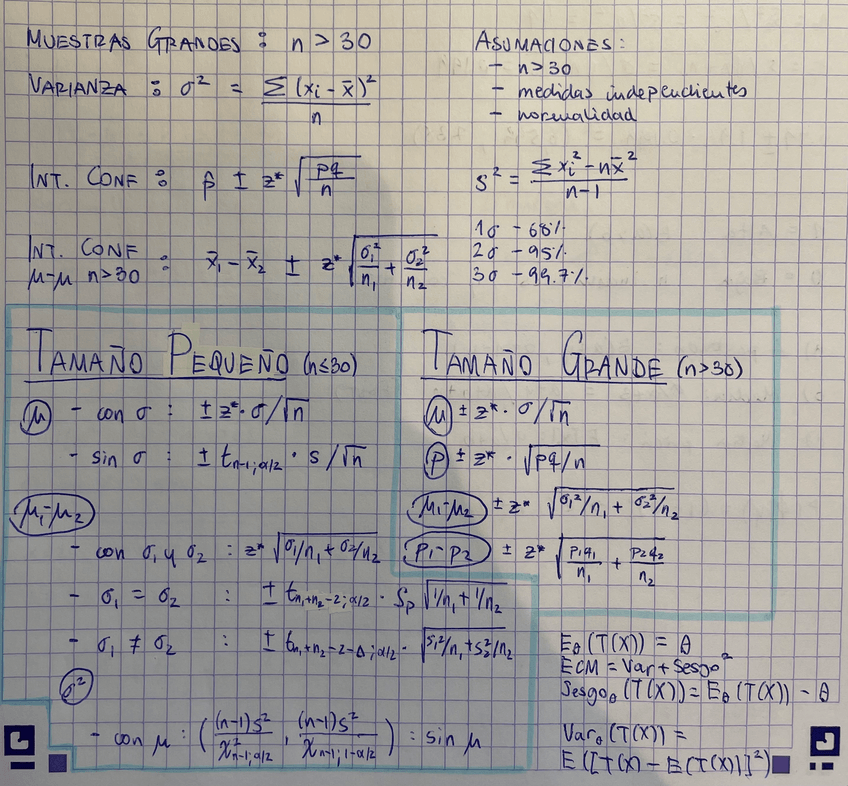 MUESTRAS GRANDES : n > 30
VARIANZA : σ² = Σ(xi - x̄)² / n
INT. CONF : p̂ ± z* √(pq/n)
INT. CONF μ-μ n>30 : x̄₁ - x̄₂ ± z* √(σ₁²/n₁ + σ₂²/n₂)
ASUMACIONES:
- n>30
- medidas independientes
- normalidad
s² = (Σxi² - nx̄²) / (n-1)
1σ - 68%
2σ - 95%
3σ - 99.7%
TAMAÑO PEQUEÑO (n≤30)
μ - con σ : ± z* · σ/√n
- sin σ : ± t n-1;α/2 · s/√n
μ₁-μ₂
- con σ₁ y σ₂ : z* √(σ₁/n₁ + σ₂/n₂)
- σ₁ = σ₂ : ± t n₁+n₂-2;α/2 · Sp √(1/n₁ + 1/n₂)
- σ₁ ≠ σ₂ : ± t n₁+n₂-2-Δ;α/2 · √(s₁²/n₁ + s₂²/n₂)
σ²
- con μ : ((n-1)s² / χ² n-1;α/2 , (n-1)s² / χ n-1;1-α/2) : sin μ
TAMAÑO GRANDE (n>30)
μ ± z* · σ/√n
p ± z* · √(pq/n)
μ₁-μ₂ ± z* √(σ₁²/n₁ + σ₂²/n₂)
p₁-p₂ ± z* √(p₁q₁/n₁ + p₂q₂/n₂)
Eθ(T(X)) = θ
ECM = Var + Sesgo²
Sesgoθ(T(X)) = Eθ(T(X)) - θ
Varθ(T(X)) =
E([T(X) - E(T(X))]²)